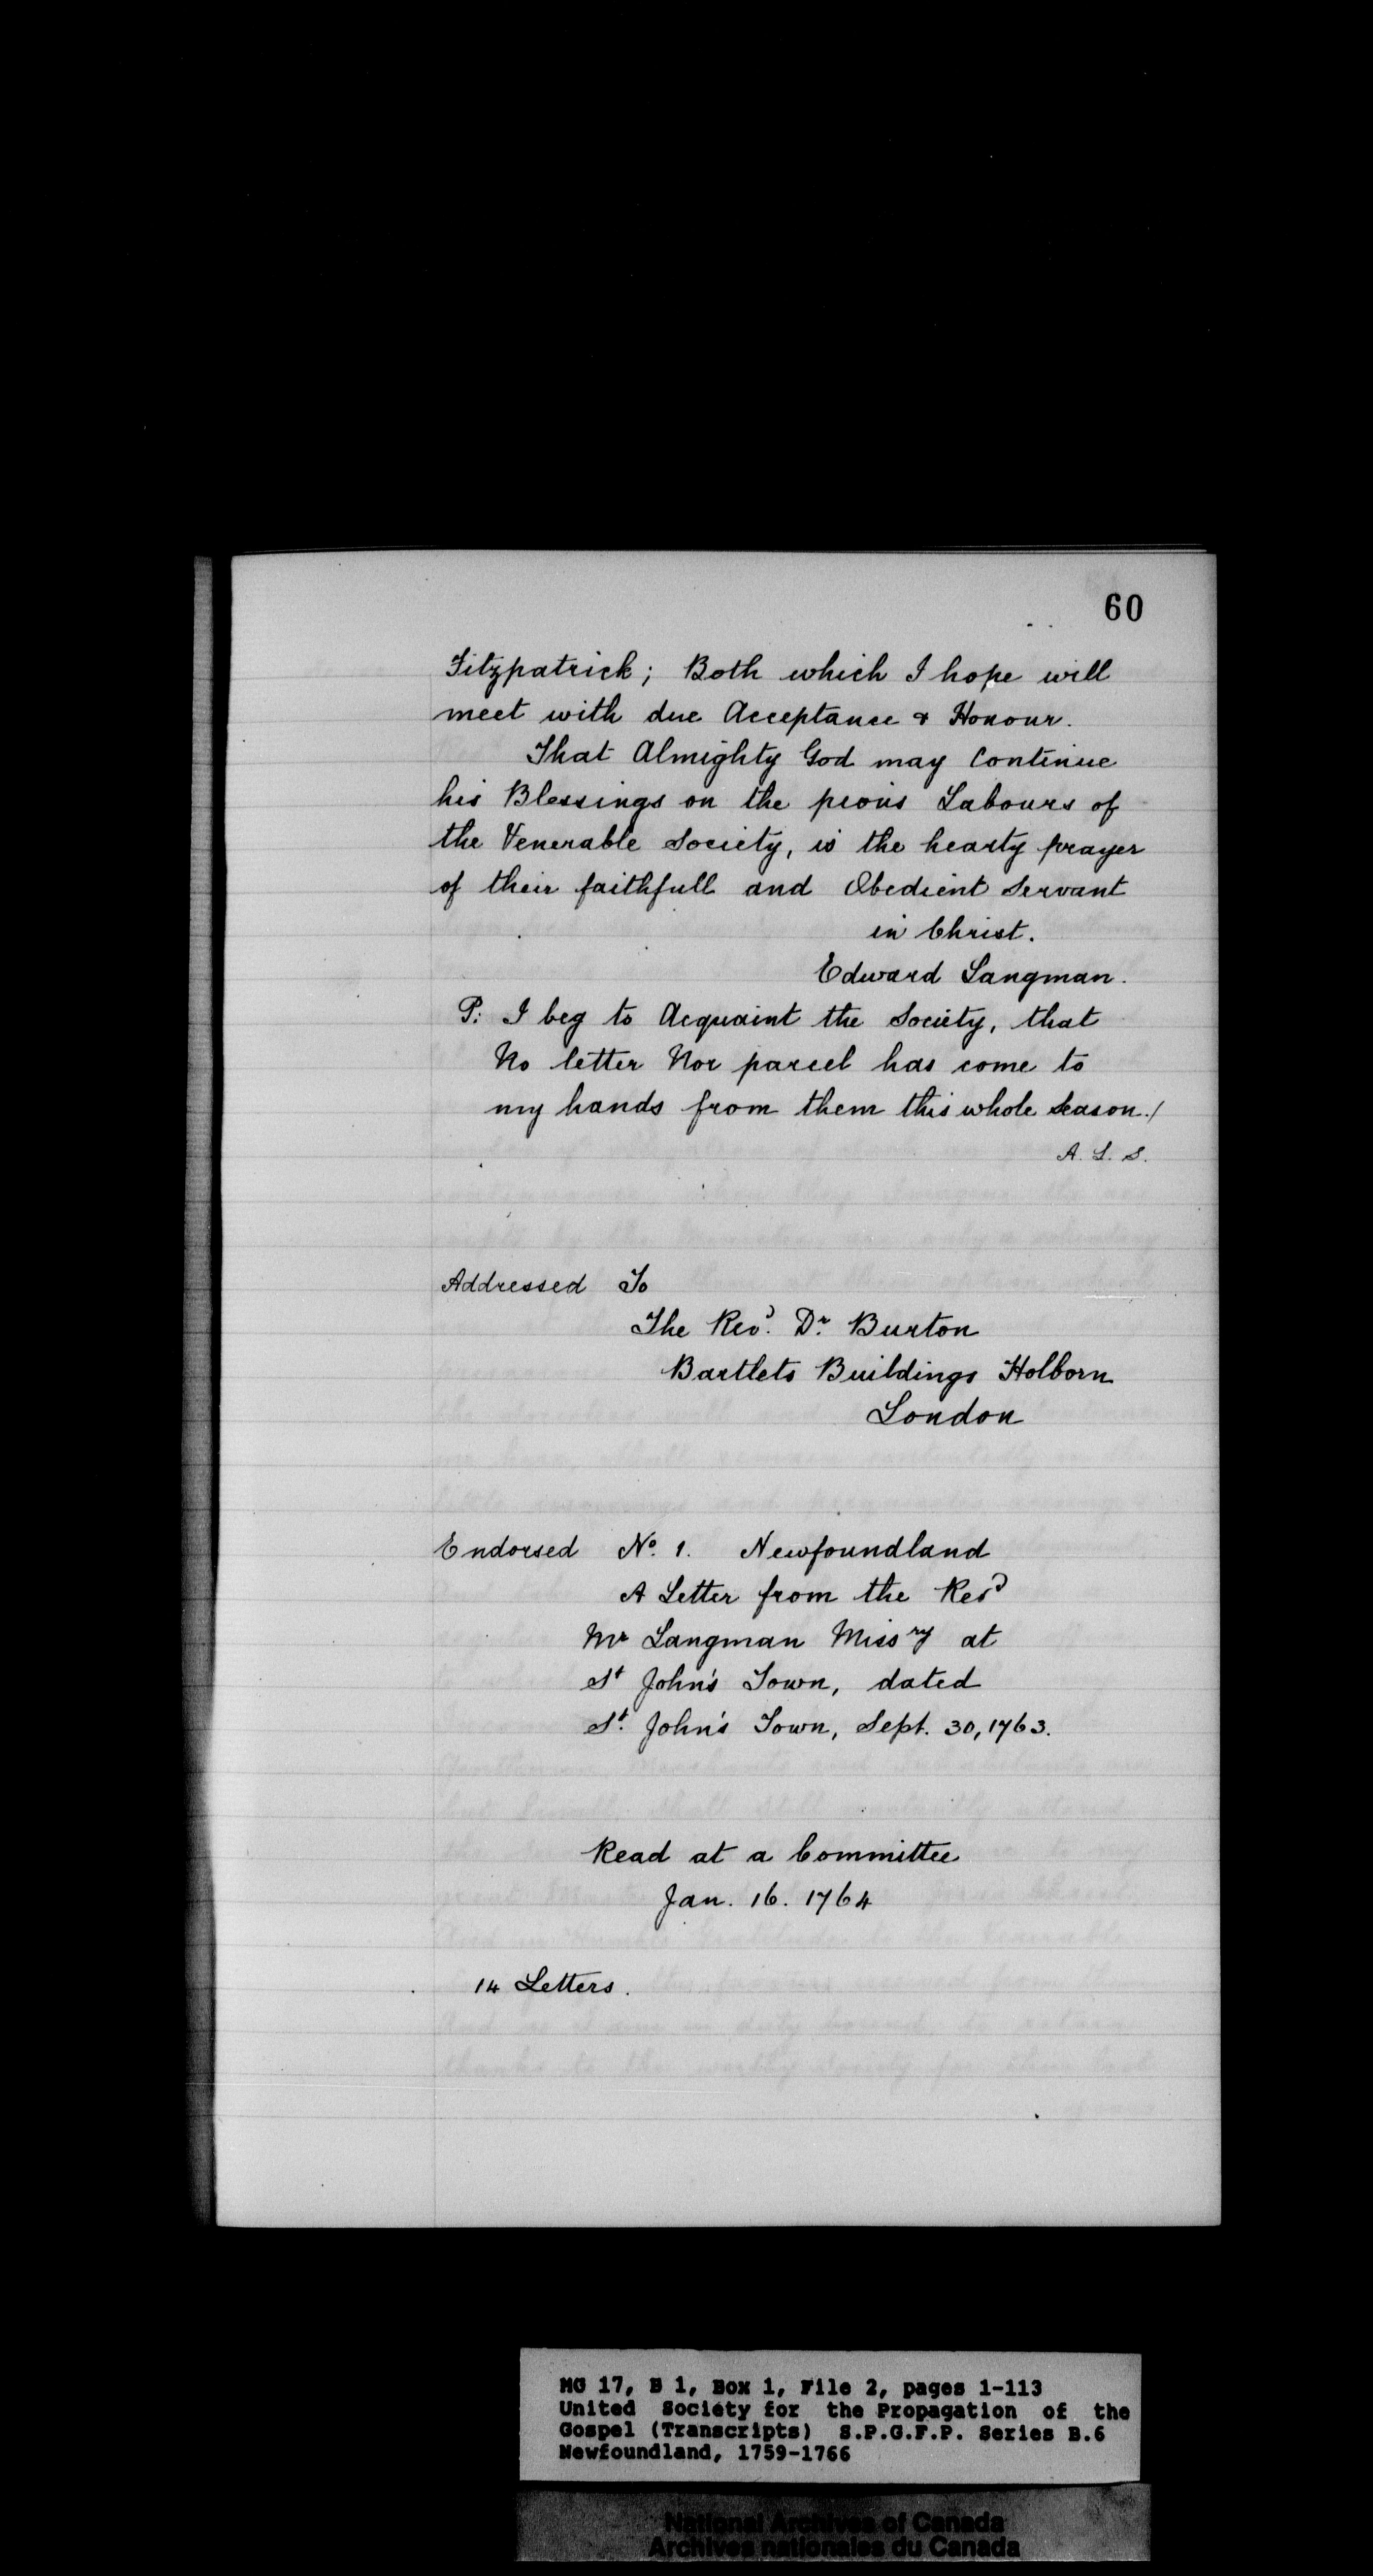 60
Fitzpatrick; Both which I hope will
meet with due Acceptance & Honour.
That Almighty God may Continue
his Blessings on the pious Labours of
the Venerable Society, is the hearty prayer
of their faithfull and Obedient Servant
in Christ.
Edward Langman.
P: I beg to Acquaint the Society, that
No letter Nor parcel has come to
my hands from them this whole Season./
A. L. S.
Addressed To
The Revd. Dr. Burton
Bartlets Buildings Holborn
London
Endorsed No. 1. Newfoundland
A Letter from the Revd
Mr Langman Missry at
St John's Town, dated
St. John's Town, Sept. 30, 1763.
Read at a Committee
Jan. 16. 1764
14 Letters.
MG 17, B 1, Box 1, File 2, pages 1-113
United Society for the Propagation of the
Gospel (Transcripts) S.P.G.F.P. Series B.6
Newfoundland, 1759-1766
National Archives of Canada
Archives nationales du Canada